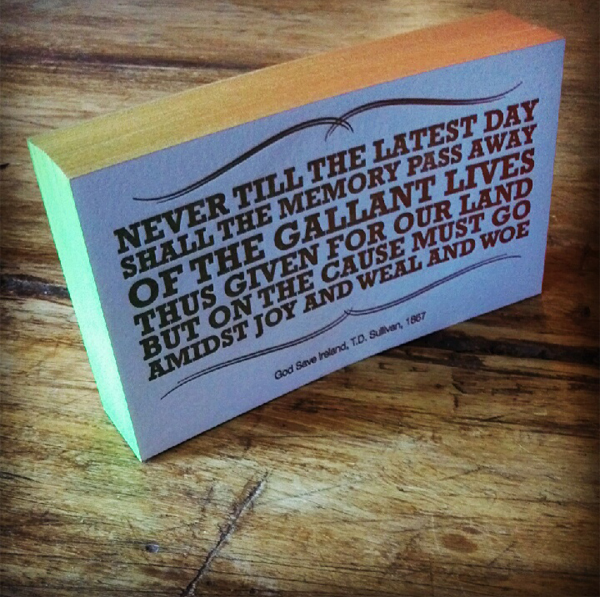 NEVER TILL THE LATEST DAY
SHALL THE MEMORY PASS AWAY
OF THE GALLANT LIVES
THUS GIVEN FOR OUR LAND
BUT ON THE CAUSE MUST GO
AMIDST JOY AND WEAL AND WOE
God Save Ireland, T.D. Sullivan, 1867